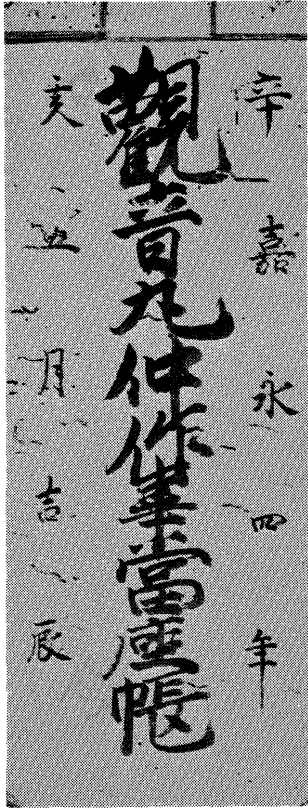 辛嘉永四年
觀音丸仲作事當座帳
亥五月吉辰